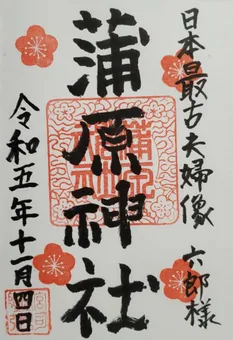 日本最古夫婦像 六郎様
蒲原神社
令和五年十一月四日